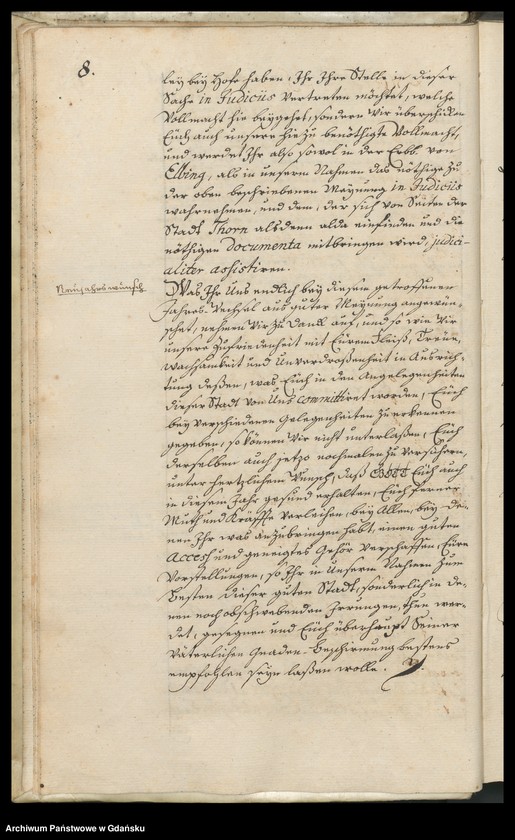 8.
ley bey Hofe haben, Ihr Ihre Stelle in dieser
Sache in Judiciis vertreten möchtet, welche
Vollmacht hie beygehet, sondern wir überschicken
Euch auch unsere hiezu benöthigte Vollmacht,
und werdet Ihr also sowol in der Erbb. von
Elbing, als in unserm Nahmen das nöthige zu
der oben beschriebenen Meynung in Judiciis
wahrnehmen, und dem, der sich von Seiten der
Stadt Thorn alsdenn alda einfinden und die
nöthigen Documenta mitbringen wird, judici-
aliter assistiren.
Neujahrswunsch
Was Ihr Uns endlich bey diesem getroffenen
Jahres-Wechsel aus guter Meynung angewün-
schet, nehmen Wir zu Danck auf, und so wie Wir
unsere Zufriedenheit mit Eurem Fleiß, Treue,
Wachsamkeit und Unverdroßenheit in Ausrich-
tung deßen, was Euch in den Angelegenheiten
dieser Stadt von Uns committiret worden, Euch
bey verschiedenen Gelegenheiten zu erkennen
gegeben, so können Wir nicht unterlaßen, Euch
derselben auch jetzo nochmalen zu versichern,
unter hertzlichem Wunsch, daß GOTT Euch auch
in diesem Jahr gesund erhalten, Euch ferner
Muth und Kräffte verleihen, bey Allen, bey De-
nen Ihr was anzubringen habt, einen guten
Access und geneigtes Gehör verschaffen, Eure
Vorstellungen, so Ihr in Unserm Nahmen zum
Besten dieser guten Stadt, sonderlich in de-
nen noch obschwebenden Irrungen, thun wer-
det, gesegnen und Euch überhaupt Seiner
Väterlichen Gnaden-Beschirmung bestens
empfohlen seyn laßen wolle.
Archiwum Państwowe w Gdańsku